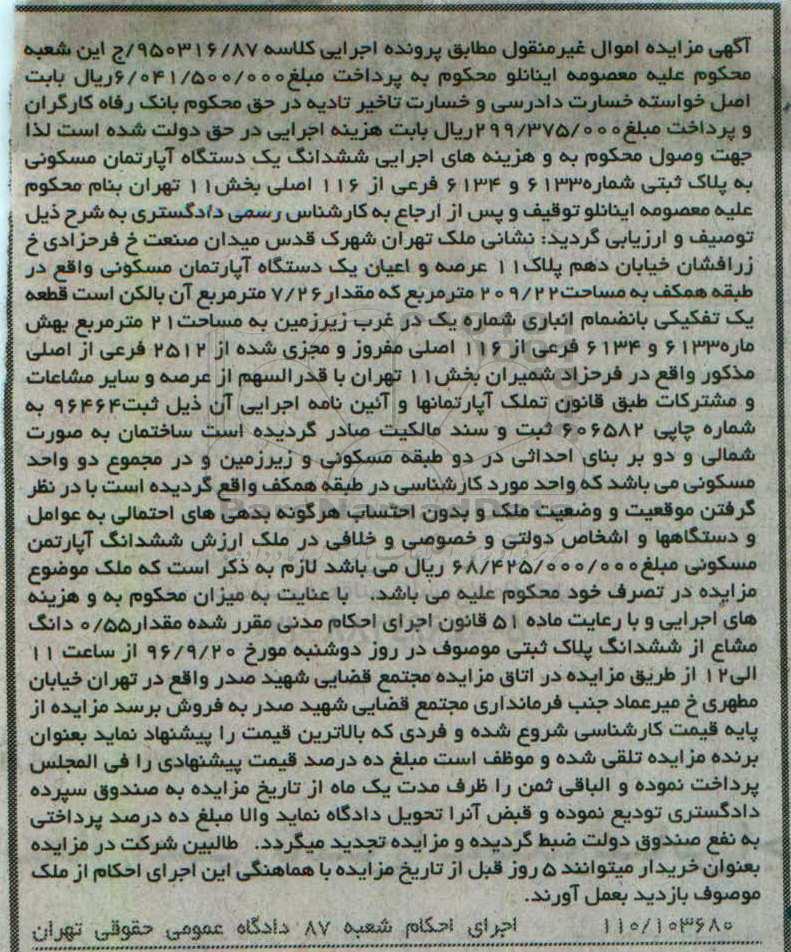 آگهی مزایده اموال غیرمنقول مطابق پرونده اجرایی کلاسه ۹۵۰۳۱۶/۸۷/ج این شعبه
محکوم علیه معصومه اینانلو محکوم به پرداخت مبلغ۶/۰۴۱/۵۰۰/۰۰۰ریال بابت
اصل خواسته خسارت دادرسی و خسارت تاخیر تادیه در حق محکوم بانک رفاه کارگران
و پرداخت مبلغ۲۹۹/۳۷۵/۰۰۰ریال بابت هزینه اجرایی در حق دولت شده است لذا
جهت وصول محکوم به و هزینه های اجرایی ششدانگ یک دستگاه آپارتمان مسکونی
به پلاک ثبتی شماره۶۱۳۳ و ۶۱۳۴ فرعی از ۱۱۶ اصلی بخش۱۱ تهران بنام محکوم
علیه معصومه اینانلو توقیف و پس از ارجاع به کارشناس رسمی دادگستری به شرح ذیل
توصیف و ارزیابی گردید: نشانی ملک تهران شهرک قدس میدان صنعت خ فرحزادی خ
زرافشان خیابان دهم پلاک۱۱ عرصه و اعیان یک دستگاه آپارتمان مسکونی واقع در
طبقه همکف به مساحت۲۰۹/۲۲ مترمربع که مقدار۷/۲۶ مترمربع آن بالکن است قطعه
یک تفکیکی بانضمام انباری شماره یک در غرب زیرزمین به مساحت۲۱ مترمربع بهش
ماره۶۱۳۳ و ۶۱۳۴ فرعی از ۱۱۶ اصلی مفروز و مجزی شده از ۲۵۱۲ فرعی از اصلی
مذکور واقع در فرحزاد شمیران بخش۱۱ تهران با قدرالسهم از عرصه و سایر مشاعات
و مشترکات طبق قانون تملک آپارتمانها و آئین نامه اجرایی آن ذیل ثبت۹۶۴۶۴ به
شماره چاپی ۶۰۶۵۸۲ ثبت و سند مالکیت صادر گردیده است ساختمان به صورت
شمالی و دو بر بنای احداثی در دو طبقه مسکونی و زیرزمین و در مجموع دو واحد
مسکونی می باشد که واحد مورد کارشناسی در طبقه همکف واقع گردیده است با در نظر
گرفتن موقعیت و وضعیت ملک و بدون احتساب هرگونه بدهی های احتمالی به عوامل
و دستگاهها و اشخاص دولتی و خصوصی و خلافی در ملک ارزش ششدانگ آپارتمن
مسکونی مبلغ۶۸/۴۲۵/۰۰۰/۰۰۰ ریال می باشد لازم به ذکر است که ملک موضوع
مزایده در تصرف خود محکوم علیه می باشد. با عنایت به میزان محکوم به و هزینه
های اجرایی و با رعایت ماده ۵۱ قانون اجرای احکام مدنی مقرر شده مقدار۰/۵۵ دانگ
مشاع از ششدانگ پلاک ثبتی موصوف در روز دوشنبه مورخ ۹۶/۹/۲۰ از ساعت ۱۱
الی۱۲ از طریق مزایده در اتاق مزایده مجتمع قضایی شهید صدر واقع در تهران خیابان
مطهری خ میرعماد جنب فرمانداری مجتمع قضایی شهید صدر به فروش برسد مزایده از
پایه قیمت کارشناسی شروع شده و فردی که بالاترین قیمت را پیشنهاد نماید بعنوان
برنده مزایده تلقی شده و موظف است مبلغ ده درصد قیمت پیشنهادی را فی المجلس
پرداخت نموده و الباقی ثمن را ظرف مدت یک ماه از تاریخ مزایده به صندوق سپرده
دادگستری تودیع نموده و قبض آنرا تحویل دادگاه نماید والا مبلغ ده درصد پرداختی
به نفع صندوق دولت ضبط گردیده و مزایده تجدید میگردد. طالبین شرکت در مزایده
بعنوان خریدار میتوانند ۵ روز قبل از تاریخ مزایده با هماهنگی این اجرای احکام از ملک
موصوف بازدید بعمل آورند.
۱۱۰/۱۰۳۶۸۰ اجرای احکام شعبه ۸۷ دادگاه عمومی حقوقی تهران